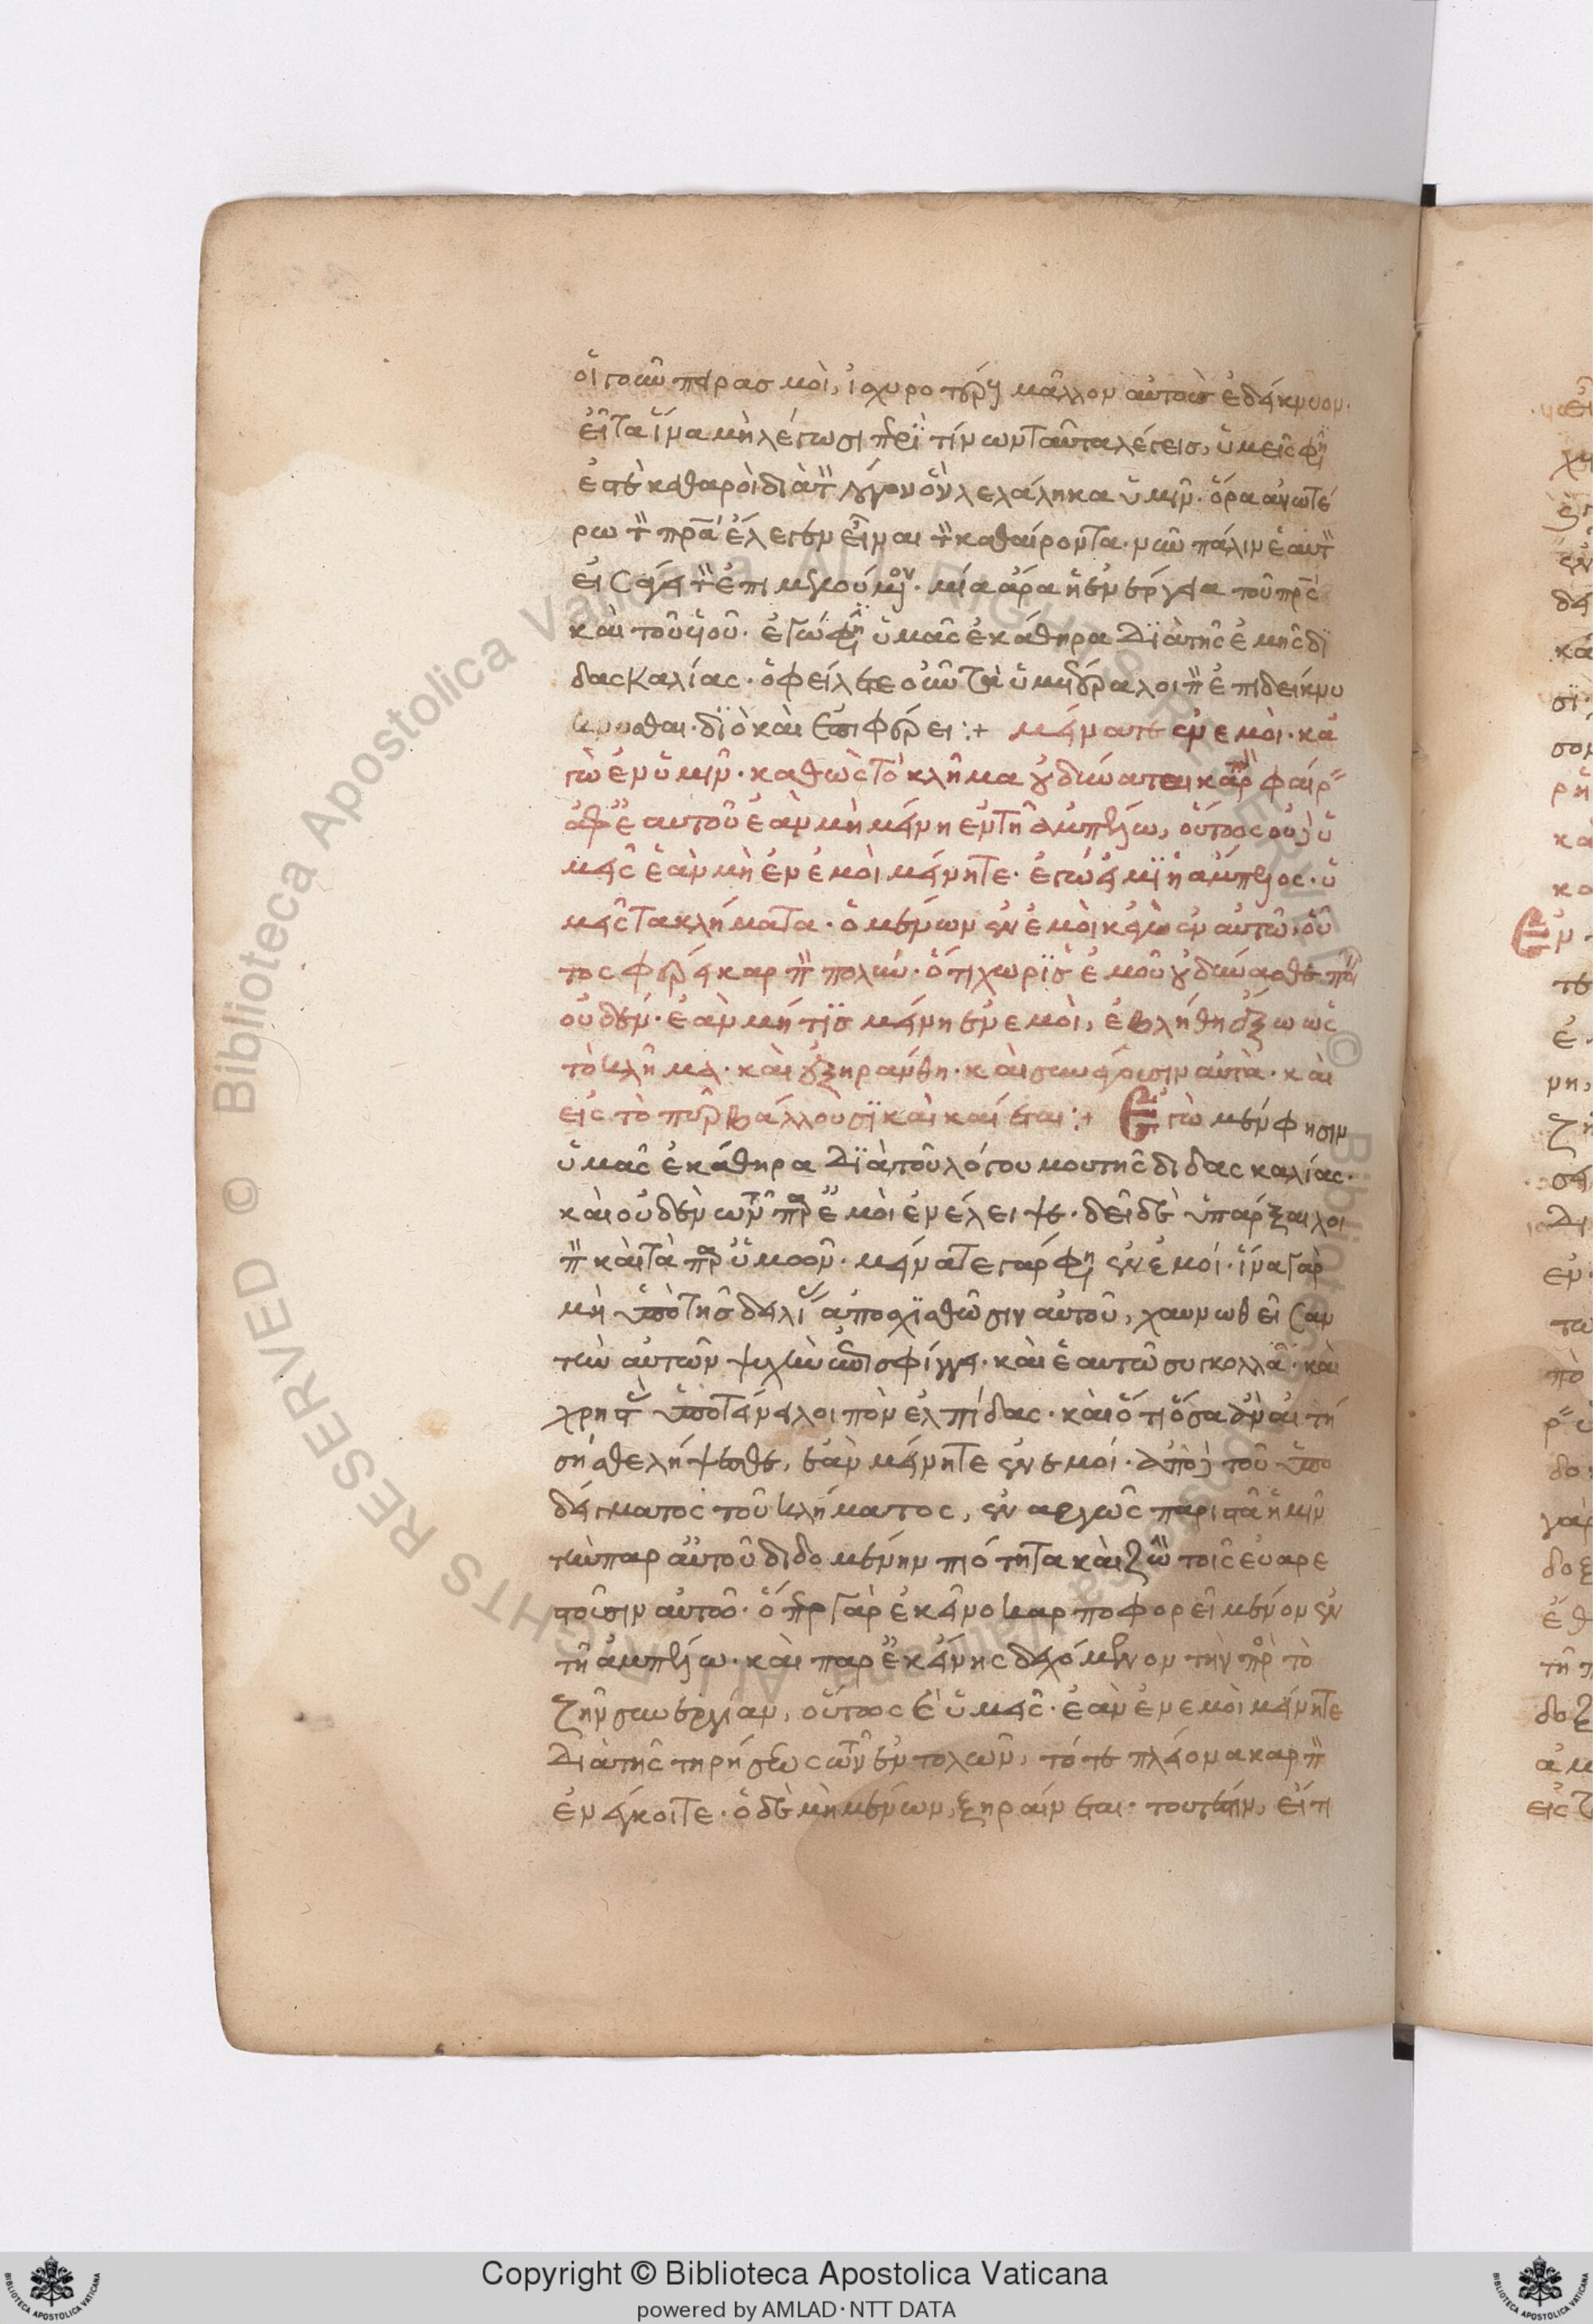 οἵ γοῦν πειρασμοὶ, ἰσχυροτέρους μᾶλλον αὐτοὺς ἐδείκνυον.
εἶτα ἵνα μὴ λέγωσι περὶ τίνων ταῦτα λέγεις, ὑμεῖς φησὶ
ἐστὲ καθαροὶ διὰ τὸν λόγον ὃν λελάληκα ὑμῖν. ὅρα ἀνωτέ
ρω τὸν πρα ἔλεγεν εἶναι τὸν καθαίροντα. νῦν πάλιν ἑαυτὸν
εἰσάγει τὸν ἐπιμελούμενον. μία ἄρα ἡ ἐνέργεια τοῦ πρς
καὶ τοῦ υἱοῦ. ἐγὼ φησὶ ὑμᾶς ἐκάθηρα διὰ τῆς ἐμῆς δι
δασκαλίας. ὀφείλετε οὖν τὰ ὑμέτερα λοιπὸν ἐπιδείκνυ
κνυσθαι. διὸ καὶ ἐπιφέρει:+ μείνατε ἐν ἐμοὶ. κα
γὼ ἐν ὑμῖν. καθὼς τὸ κλῆμα οὐ δύναται καρπὸν φέρειν
ἀφ' ἑαυτοῦ ἐὰν μὴ μείνη ἐν τῆ ἀμπέλω, οὕτως οὐδὲ ὑ
μεῖς ἐὰν μὴ ἐν ἐμοὶ μείνητε. ἐγώ εἰμι ἡ ἄμπελος. ὑ
μεῖς τα κλήματα. ὁ μένων ἐν ἐμοὶ κἀγὼ ἐν αὐτῶ, οὗ
τος φέρει καρπὸν πολύν. ὅτι χωρὶς ἐμοῦ οὐ δύνασθε ποιεῖν
οὐδέν. ἐὰν μή τις μείνη ἐν ἐμοὶ, ἐβλήθη ἔξω ὡς
τὸ κλῆμα. καὶ ἐξηράνθη. καὶ συνάγουσιν αὐτὰ. καὶ
εἰς τὸ πῦρ βάλλουσι καὶ καίεται:+ Ἐγὼ μέν φησιν
ὑμᾶς ἐκάθηρα διὰ τοῦ λόγου μου τῆς διδασκαλίας.
καὶ οὐδὲν τῶν παρ' ἐμοὶ ἐνέλειψε. δεῖ δὲ ὑπάρξαι λοι
πὸν καὶ τὰ παρ' ὑμῶν. μείνατε γάρ φησὶ ἐν ἐμοί. ἵνα γὰρ
μὴ ὑπὸ τῆς δειλίας ἀποσχισθῶσιν αὐτοῦ, χαυνωθεῖσαν
τὴν αὐτῶν ψυχὴν ἐπισφίγγει. καὶ ἑαυτῶ συγκολλᾶ. καὶ
χρηστὰς ὑποτείνει λοιπὸν ἐλπίδας. καὶ ὅτι ὅσα ἂν αἰτή
σησθε λήψεσθε, ἐὰν μείνητε ἐν ἐμοί. ἀπὸ δὲ τοῦ ὑπο
δείγματος τοῦ κλήματος, ἐναργῶς παριστᾶ ἡμῖν
τὴν παρ αὐτοῦ διδομένην πιότητα καὶ ζωὴν τοῖς εὐαρε
στοῦσιν αὐτῶ. ὥσπερ γὰρ ἐκεῖνο καρποφορεῖ μένον ἐν
τῆ ἀμπέλω. καὶ παρ' ἐκείνης δεχόμενον τὴν πρὸς τὸ
ζῆν συνέργειαν, οὕτως καὶ ὑμεῖς. ἐὰν ἐν ἐμοὶ μείνητε
διὰ τῆς τηρήσεως τῶν ἐντολῶν, τότε πλείονα καρπὸν
ἐνέγκοιτε. ὁ δὲ μὴ μένων, ξηραίνεται. τουτέστιν, εἴ τι